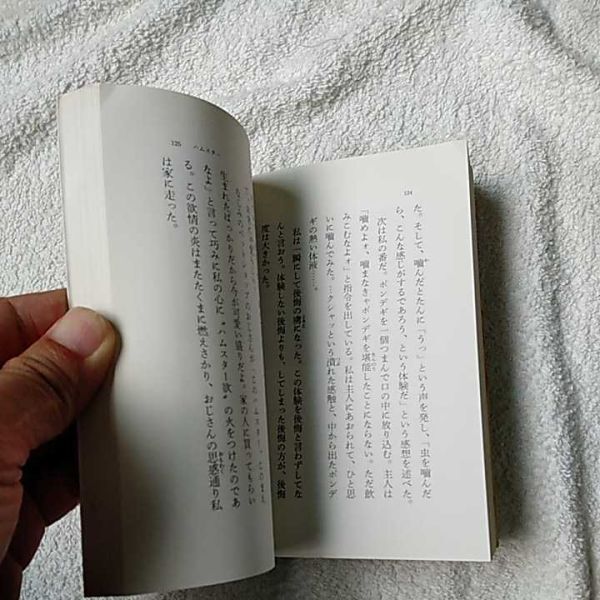 124
た。そして、噛んだとたんに「うっ」という声を発し、「虫を噛んだ
ら、こんな感じがするであろう、という体験だ」という感想を述べた。
次は私の番だ。ポンデギを一個つまんで口の中に放り込む。主人は
「噛めよォ、噛まなきゃポンデギを堪能したことにならない。ただ飲
みこむなよォ」と指令を出している。私は主人にあおられて、ひと思
いに噛んでみた。…クシャッという潰れた感触と、中から出たポンデ
ギの熱い体液……。
私は一瞬にして後悔の虜になった。この体験を後悔と言わずしてな
んと言おう。体験しない後悔よりも、してしまった後悔の方が、後悔
度は大きかった。
125 ハムスター
生まれたばっかりだから今が可愛い盛りだよ。家の人に買ってもらい
なよ」と言って巧みに私の心に〝ハムスター欲〟の火をつけたのであ
る。この欲情の炎はまたたくまに燃えさかり、おじさんの思惑通り私
は家に走った。